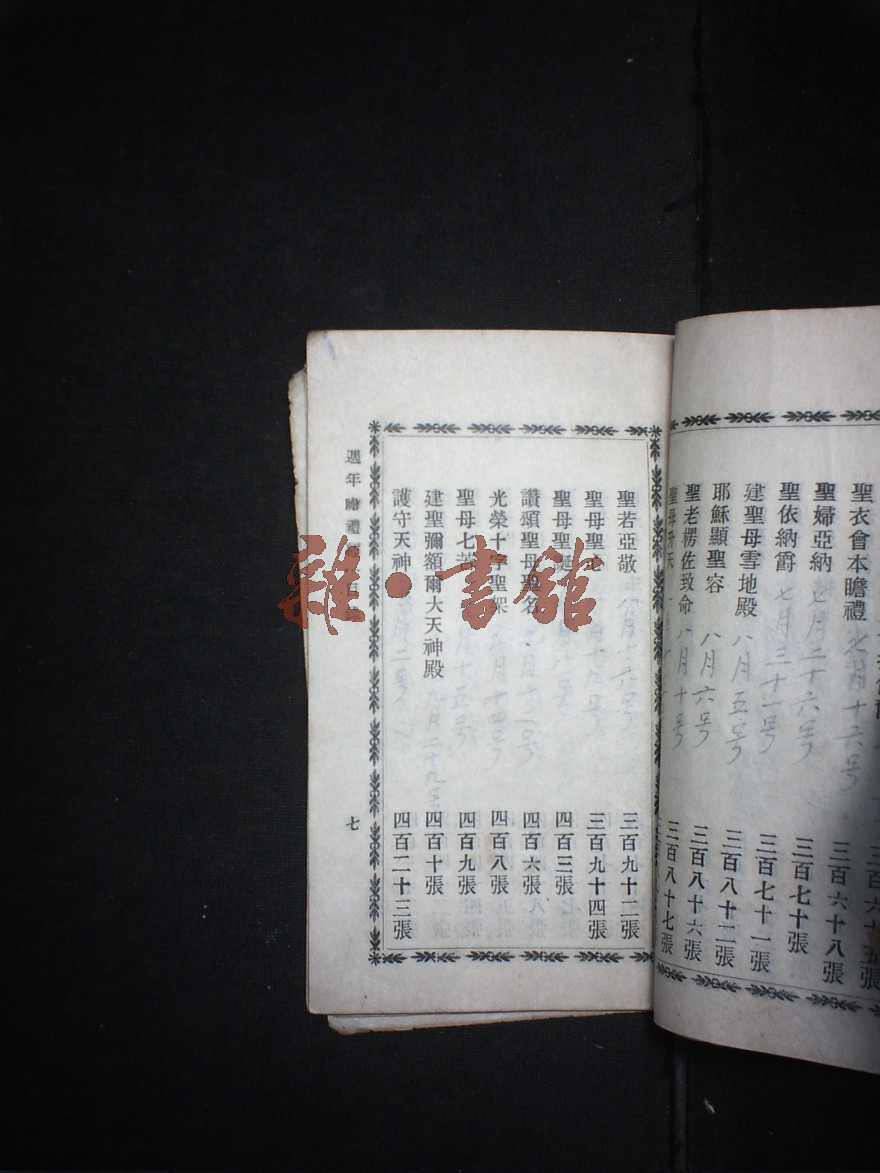 聖衣會本瞻禮 七月十六號
聖婦亞納 七月二十六號 三百六十八張
聖依納爵 七月三十一號 三百七十張
建聖母雪地殿 八月五号 三百七十一張
耶穌顯聖容 八月六号 三百八十二張
聖老楞佐致命 八月十号 三百八十六張
聖母升天 三百八十七張
聖若亞敬 八月十六号 三百九十二張
聖母聖心 三百九十四張
聖母聖誕 四百三張
讚頌聖母聖名 四百六張
光榮十字聖架 九月十四号 四百八張
聖母七苦 月十五号 四百九張
建聖彌額爾大天神殿 九月二十九号 四百十張
護守天神 月二号 四百二十三張
週年瞻禮
七
雜·書館